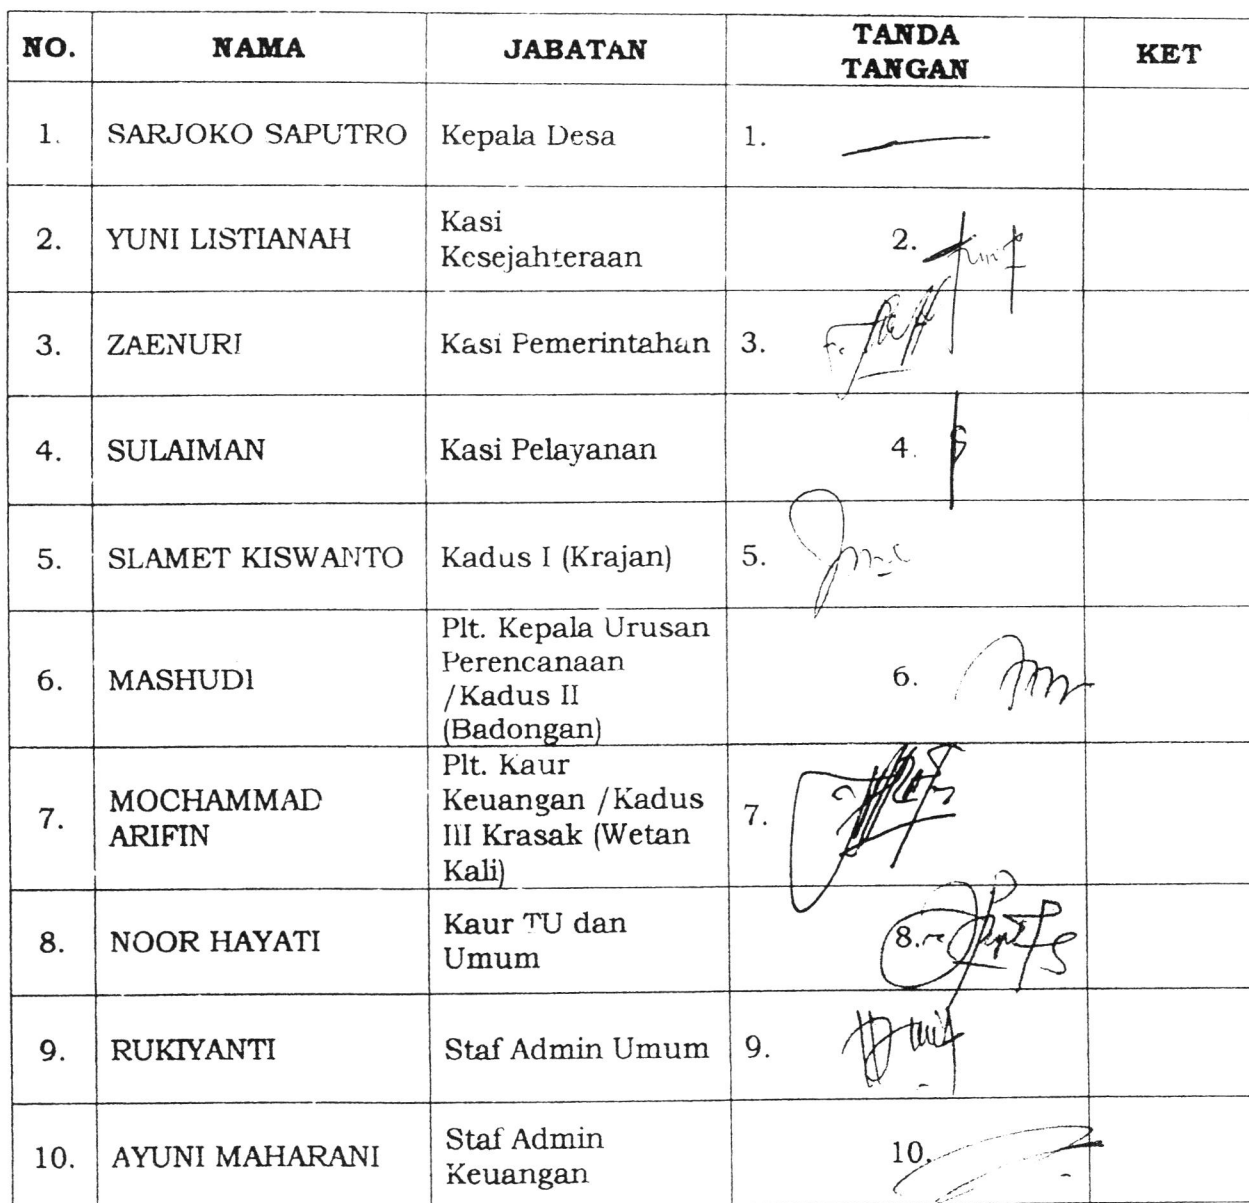 NO. NAMA JABATAN TANDA TANGAN KET
1. SARJOKO SAPUTRO Kepala Desa 1.
2. YUNI LISTIANAH Kasi Kesejahteraan 2.
3. ZAENURI Kasi Pemerintahan 3.
4. SULAIMAN Kasi Pelayanan 4.
5. SLAMET KISWANTO Kadus I (Krajan) 5.
6. MASHUDI Plt. Kepala Urusan
Perencanaan
/Kadus II
(Badongan) 6.
7. MOCHAMMAD ARIFIN Plt. Kaur
Keuangan /Kadus
III Krasak (Wetan
Kali) 7.
8. NOOR HAYATI Kaur TU dan
Umum 8.
9. RUKIYANTI Staf Admin Umum 9.
10. AYUNI MAHARANI Staf Admin
Keuangan 10.